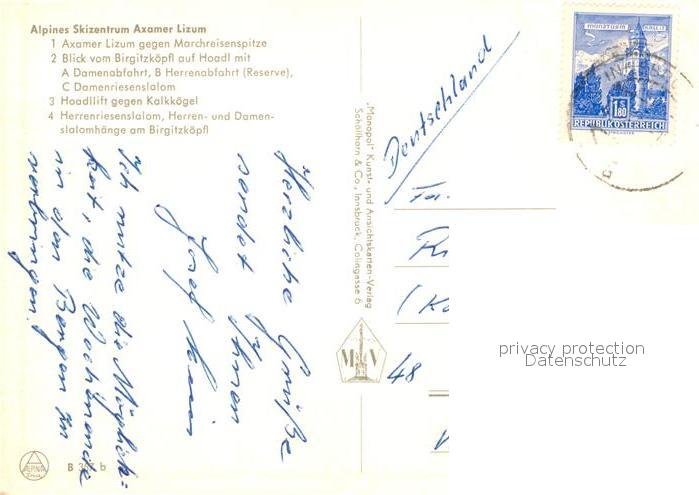 Alpines Skizentrum Axamer Lizum
1 Axamer Lizum gegen Marchreisenspitze
2 Blick vom Birgitzköpfl auf Hoadl mit
A Damenabfahrt, B Herrenabfahrt (Reserve),
C Damenriesenslalom
3 Hoadllift gegen Kalkkögel
4 Herrenriesenslalom, Herren- und Damen-
slalomhänge am Birgitzköpfl
Herzliche Grüße
sendet Ihnen
Josef
Ich nutze die Möglich=
keit, die Wochenende
in den Bergen zu
verbringen.
B 357 b
„Monopol" Kunst- und Ansichtskarten-Verlag
Schöllhorn & Co., Innsbruck, Colingasse 6
M V
Deutschland
Fa.
48
MÜNZTURM HALL i.T.
1 S 80
REPUBLIK ÖSTERREICH
privacy protection
Datenschutz